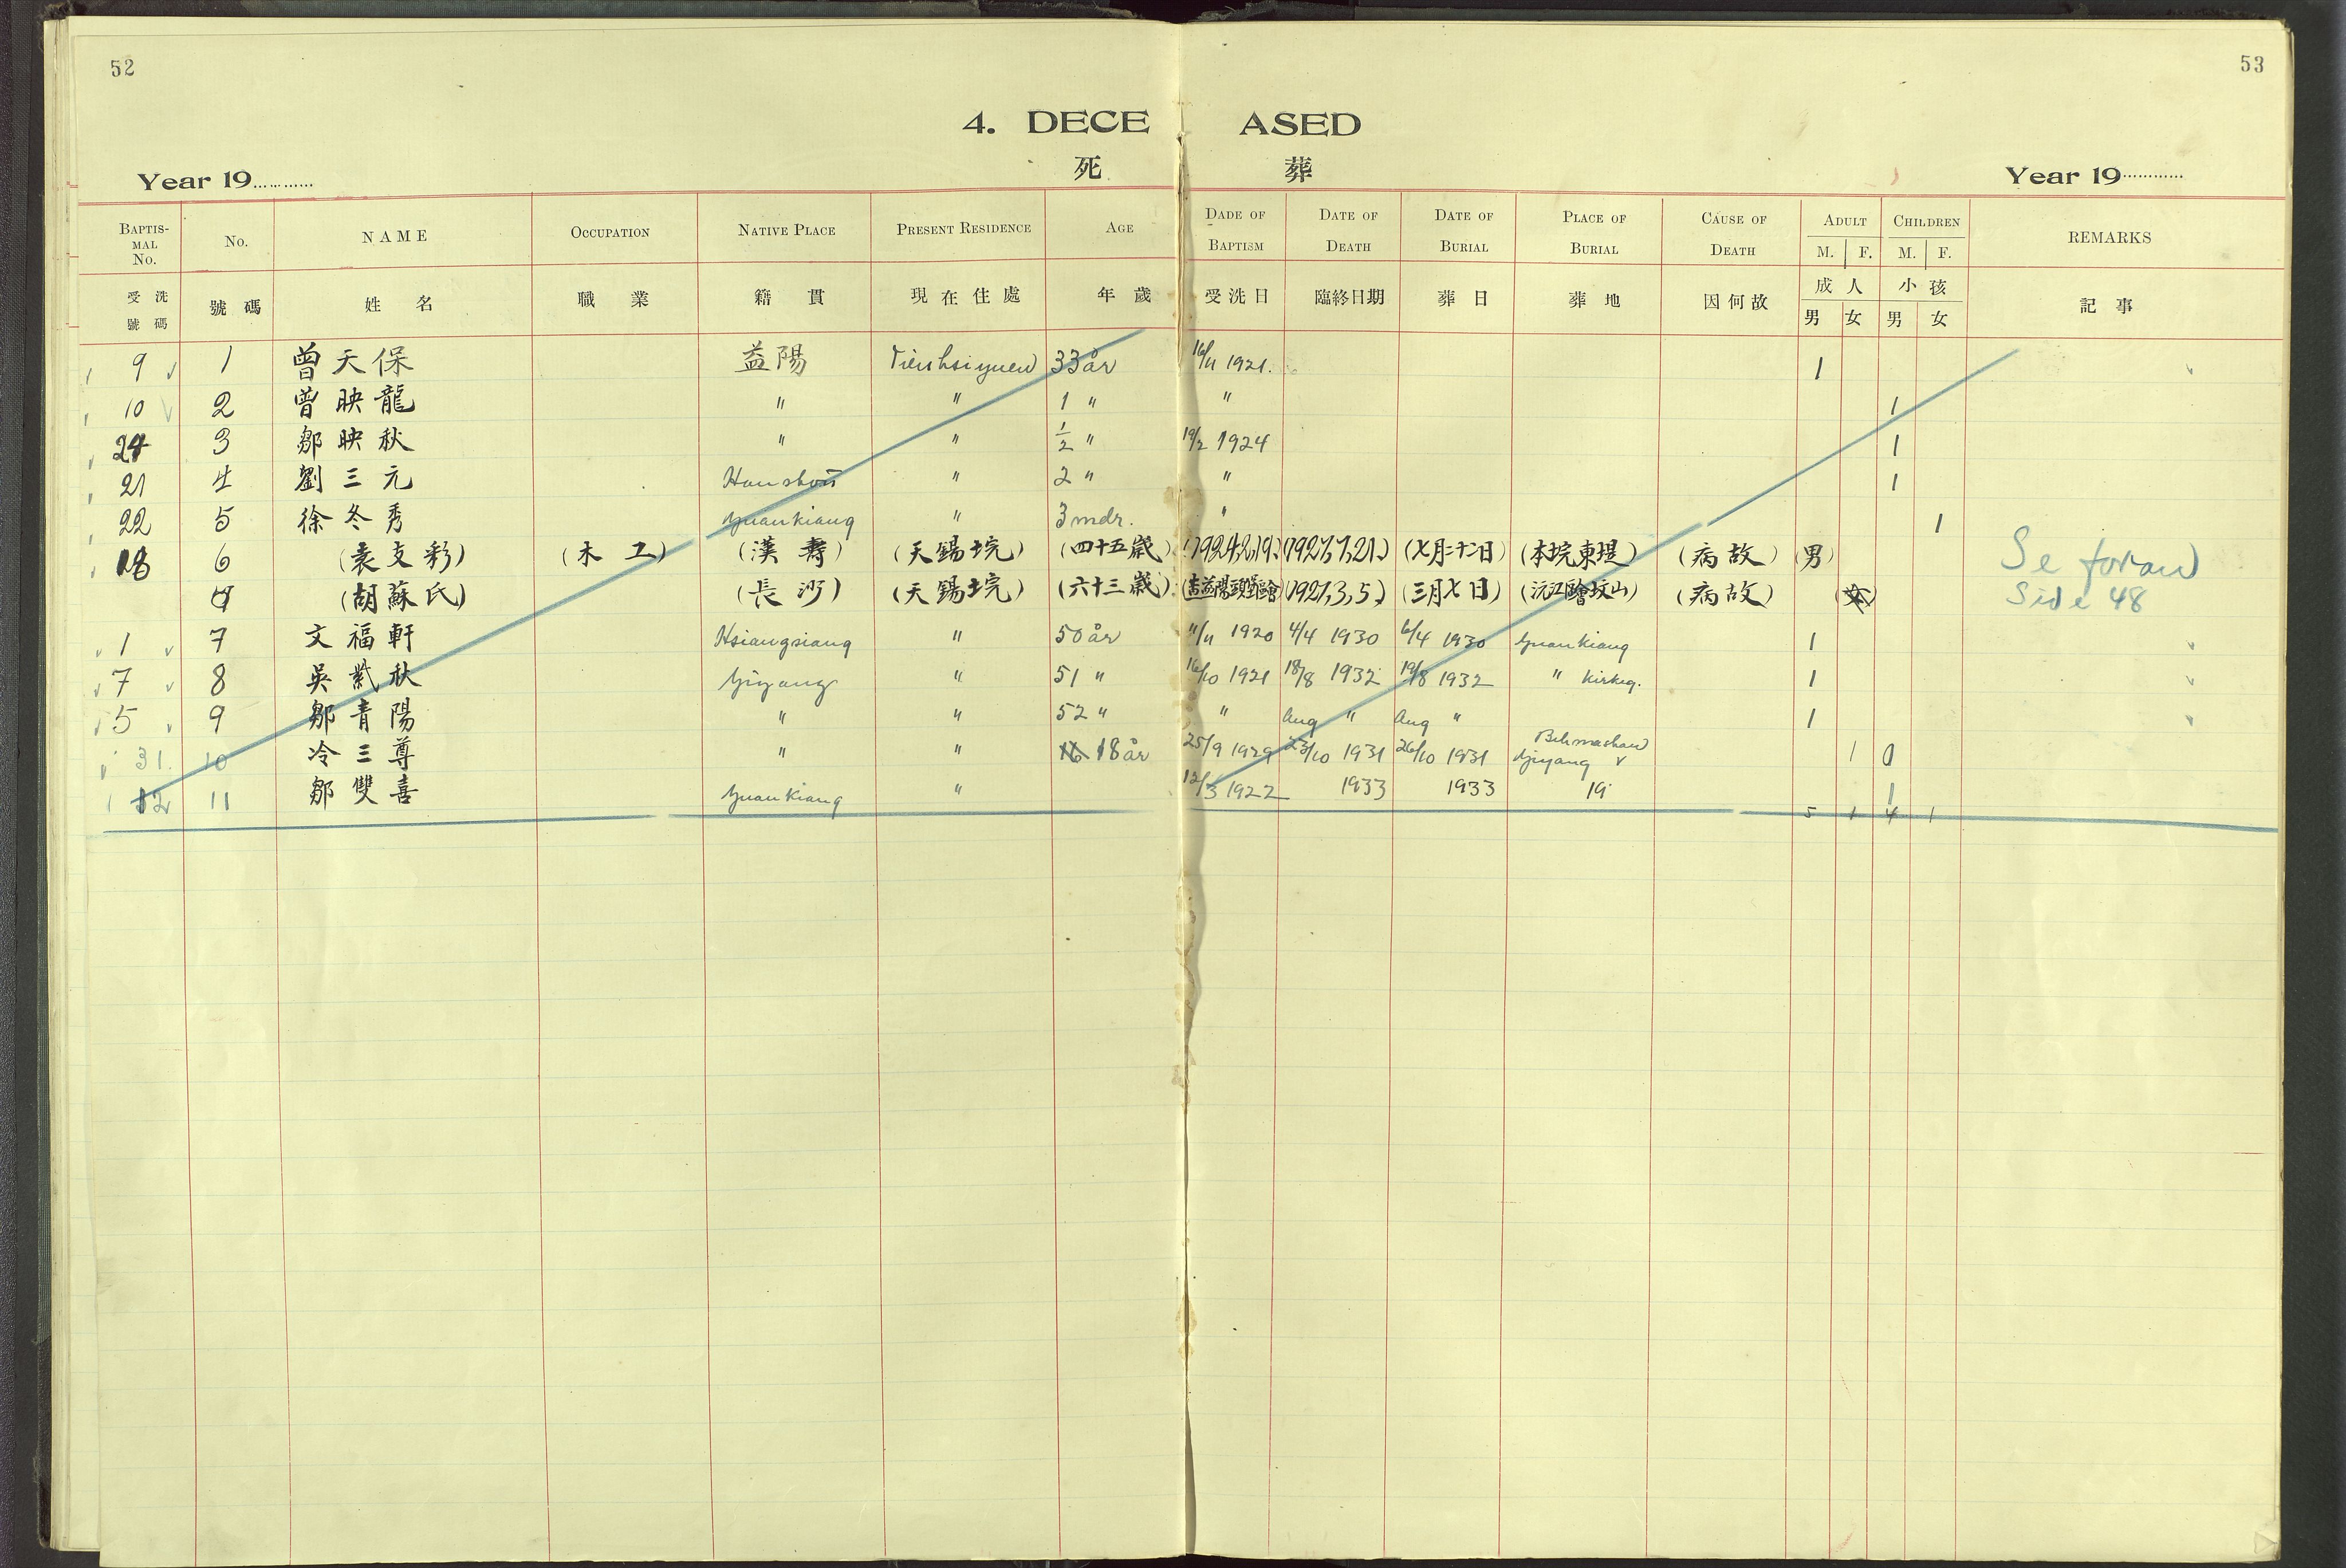 52
53
4. DECEASED
死 葬
Year 19............
Year 19............
BAPTIS-MAL No. No. NAME OCCUPATION NATIVE PLACE PRESENT RESIDENCE AGE DADE OF BAPTISM DATE OF DEATH DATE OF BURIAL PLACE OF BURIAL CAUSE OF DEATH ADULT M. F. CHILDREN M. F. REMARKS
受洗號碼 號碼 姓名 職業 籍貫 現在住處 年歲 受洗日 臨終日期 葬日 葬地 因何故 成人 男 女 小孩 男 女 記事
9 1 曾天保 益陽 Tienhsiyuen 33 år 16/11 1921. 1
10 2 曾映龍 " " 1 " " 1
24 3 鄒映秋 " " 1/2 " 19/2 1924 1
21 4 劉三元 Hanshou " 2 " " 1
22 5 徐冬秀 Yuankiang " 3 mdr. " 1
18 6 (袁支彩) (木工) (漢壽) (天錫垸) (四十五歲) (1924,2,19) (1927,7,21) (七月二十二日) (本垸東堤) (病故) (男) Se foran
(胡蘇氏) (長沙) (天錫垸) (六十三歲) (1927,3,5) (三月七日) (病故) (女) Side 48
1 7 文福軒 Hsiangsiang " 50 år 11/11 1920 4/4 1930 6/4 1930 Yuankiang 1
7 8 吳紫秋 Yiyang " 51 " 16/10 1921 18/8 1932 19/8 1932 " Kirkeg. 1
5 9 鄒青陽 " " 52 " " Aug " Aug " 1
31. 10 冷三尊 " " 16 18 år 25/9 1929 23/10 1931 26/10 1931 Yiyang 1 0
12 11 鄒雙喜 Yuankiang " 12/3 1922 1933 1933 19 1
5 1 4 1